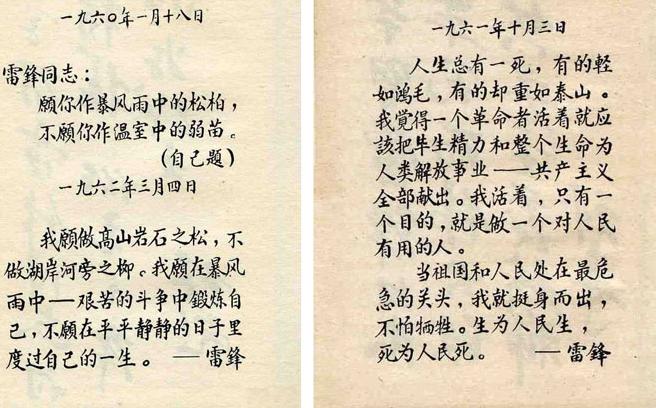 一九六〇年一月十八日
雷鋒同志：
願你作暴风雨中的松柏，
不願你作温室中的弱苗。
（自己題）
一九六二年三月四日
我願做高山岩石之松，不
做湖岸河旁之柳。我願在暴风
雨中——艰苦的斗争中鍛炼自
己，不願在平平静静的日子里
度过自己的一生。 ——雷鋒
一九六一年十月三日
人生总有一死，有的軽
如鸿毛，有的却重如泰山。
我覚得一个革命者活着就应
該把毕生精力和整个生命为
人类解放事业——共产主义
全部献出。我活着，只有一
个目的，就是做一个对人民
有用的人。
当祖国和人民处在最危
急的关头，我就挺身而出，
不怕牺牲。生为人民生，
死为人民死。 ——雷鋒